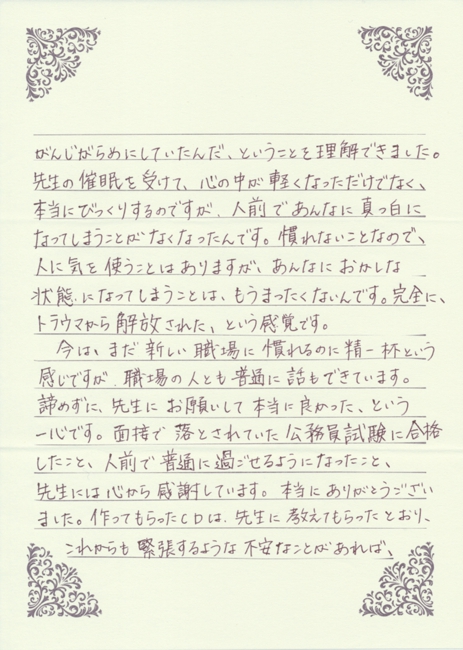 がんじがらめにしていたんだ、ということを理解できました。
先生の催眠を受けて、心の中が軽くなっただけでなく、
本当にびっくりするのですが、人前であんなに真っ白に
なってしまうことがなくなったんです。慣れないことなので、
人に気を使うことはありますが、あんなにおかしな
状態になってしまうことは、もうまったくないんです。完全に、
トラウマから解放された、という感覚です。
今は、まだ新しい職場に慣れるのに精一杯という
感じですが、職場の人とも普通に話もできています。
諦めずに、先生にお願いして本当に良かった、という
一心です。面接で落とされていた公務員試験に合格
したこと、人前で普通に過ごせるようになったこと、
先生には心から感謝しています。本当にありがとうござい
ました。作ってもらったCDは、先生に教えてもらったとおり、
これからも緊張するような不安なことがあれば、